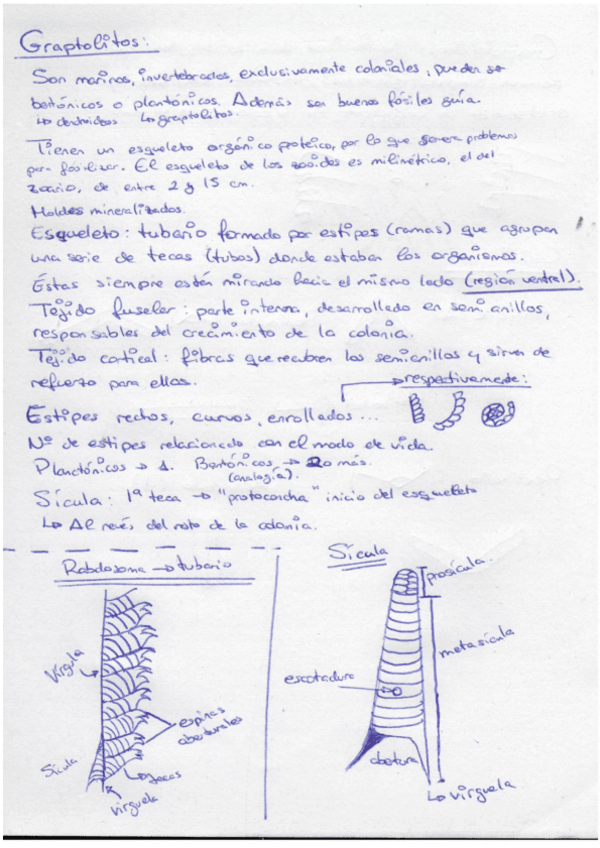 Graptolitos:
Son marinos, invertebrados, exclusivamente coloniales, pueden ser
bentónicos o planctónicos. Además son buenos fósiles guía.
↳ dendroideos ↳ graptolitos.
Tienen un esqueleto orgánico proteico, por lo que genera problemas
para fosilizar. El esqueleto de los zooides es milimétrico, el del
zoario, de entre 2 y 15 cm.
Moldes mineralizados.
Esqueleto: tubario formado por estipes (ramas) que agrupan
una serie de tecas (tubos) donde estaban los organismos.
Éstas siempre están mirando hacia el mismo lado (región ventral).
Tejido fuselar: parte interna, desarrollado en semianillos,
responsables del crecimiento de la colonia.
Tejido cortical: fibras que recubren los semianillos y sirven de
refuerzo para ellos.
→ respectivamente:
Estipes rectos, curvos, enrollados...
Nº de estipes relacionado con el modo de vida.
Planctónicos → 1. Bentónicos → 2 o más.
(analogía).
Sícula: 1ª teca → "protoconcha" inicio del esqueleto
↳ Al revés del resto de la colonia.
Rabdosoma → tubario
Sícula
prosícula.
Vírgula
metasícula
escotadura
espinas
aberturales
Sícula
tecas
abertura
virguela
↳ virguela